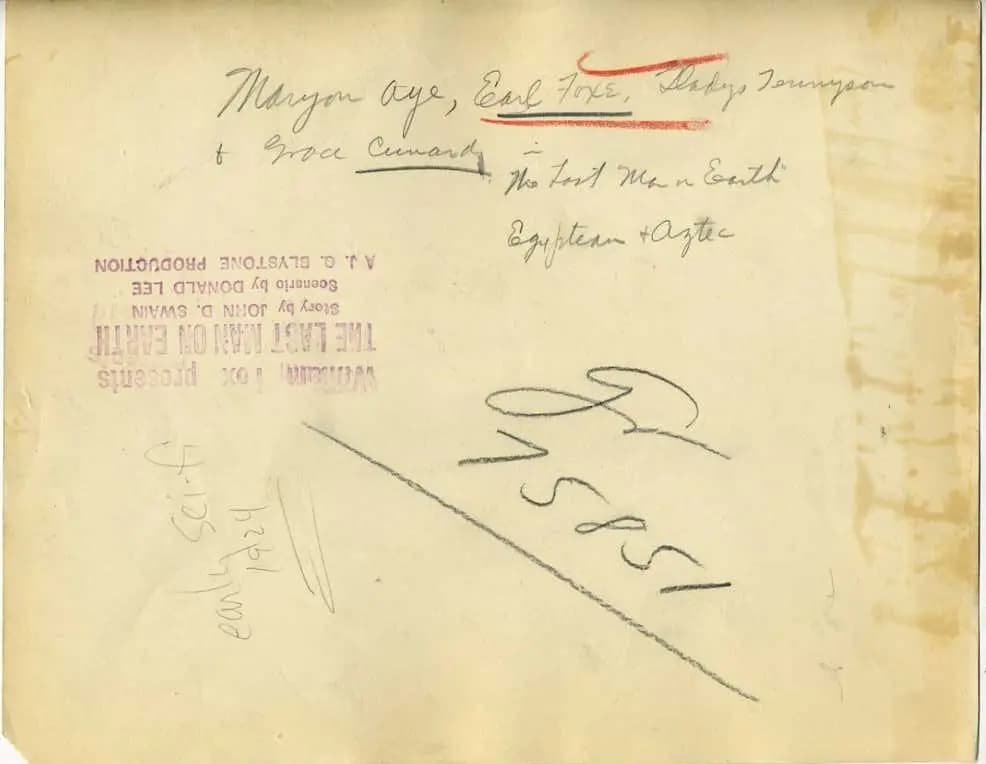 Maryon Aye, Earl Foxe, Gladys Tennyson
& Grace Cunard in
"The Last Man on Earth"
Egyptean + Aztec
William Fox presents
THE LAST MAN ON EARTH
Story by JOHN D. SWAIN
Scenario by DONALD LEE
A J. G. BLYSTONE PRODUCTION
early sci-fi
1924